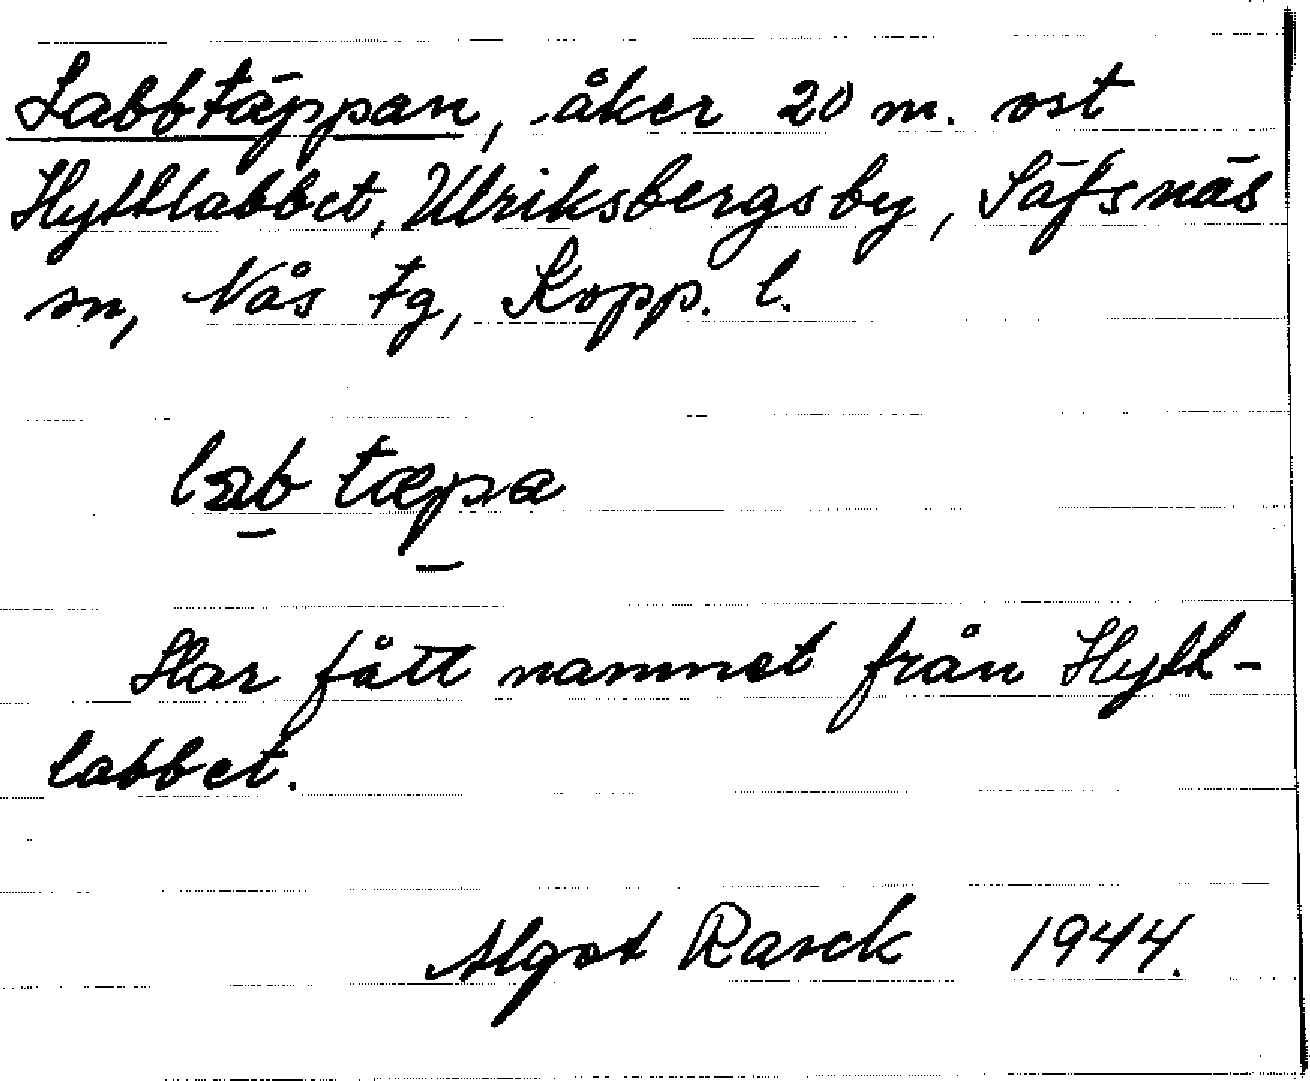 Labbtäppan, åker 20 m. ost
Hyttlabbet, Ulriksbergsby, Säfsnäs
sn, Nås tg, Kopp. l.
tæpa
Har fått namnet från Hytt-
labbet.
Algot Rasck 1944.